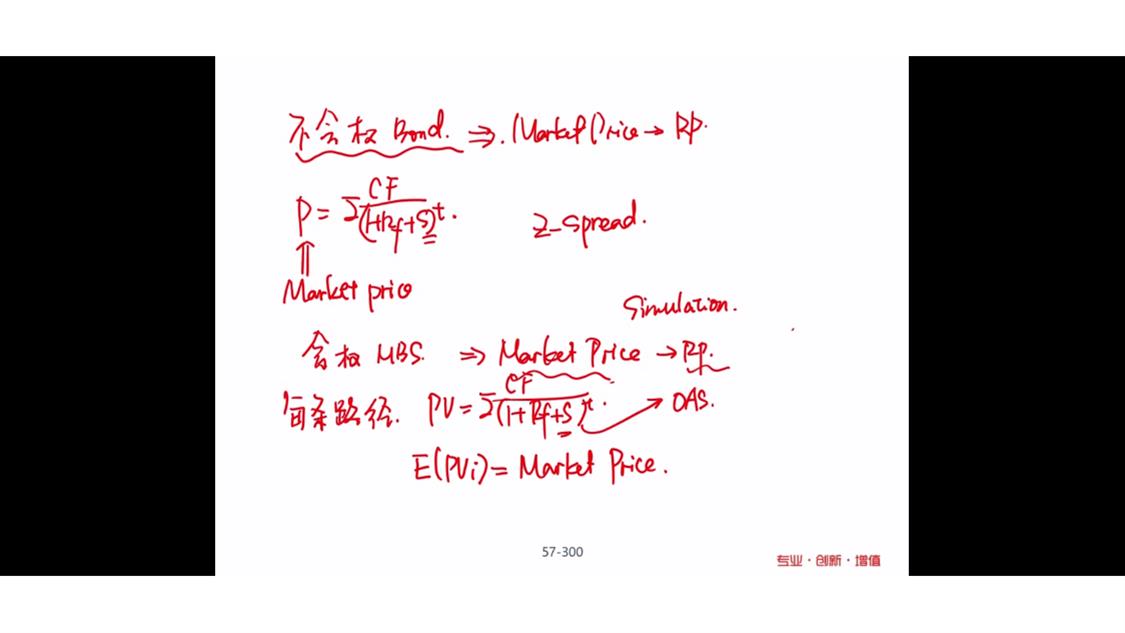 不含权 Bond. ⇒. Market Price → RP.
P = Σ CF/(1+Rf+S)^t. Z-spread.
⇑
Market price
Simulation.
含权 MBS. ⇒ Market Price → RP.
每条路径. PV = Σ CF/(1+Rf+S)^t. → OAS.
E(PVi) = Market Price.
57-300
专业·创新·增值